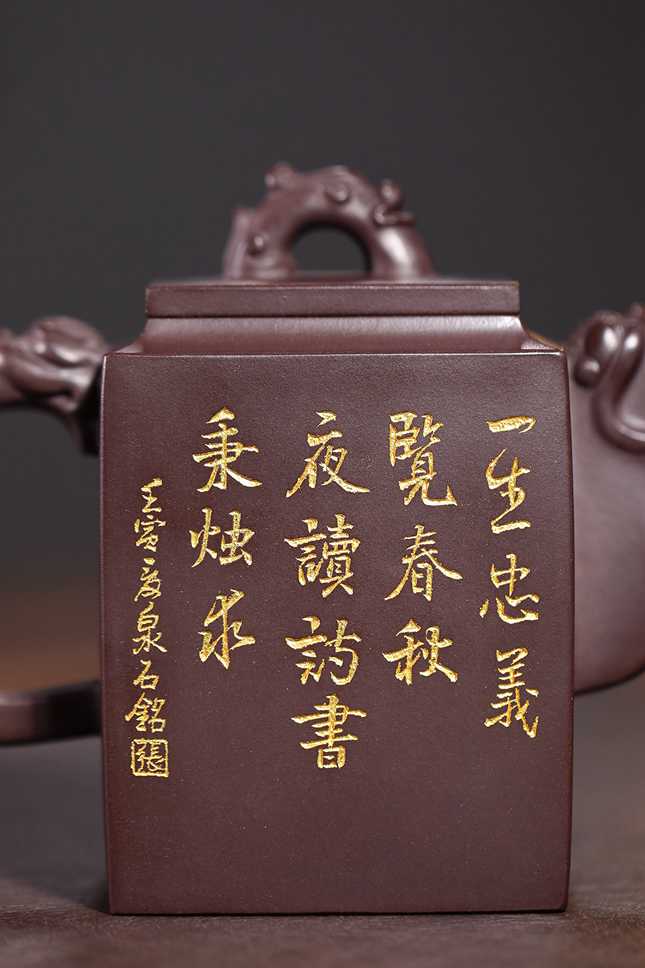 一生忠義
覽春秋
夜讀詩書
秉烛求
壬寅夏泉石銘
張